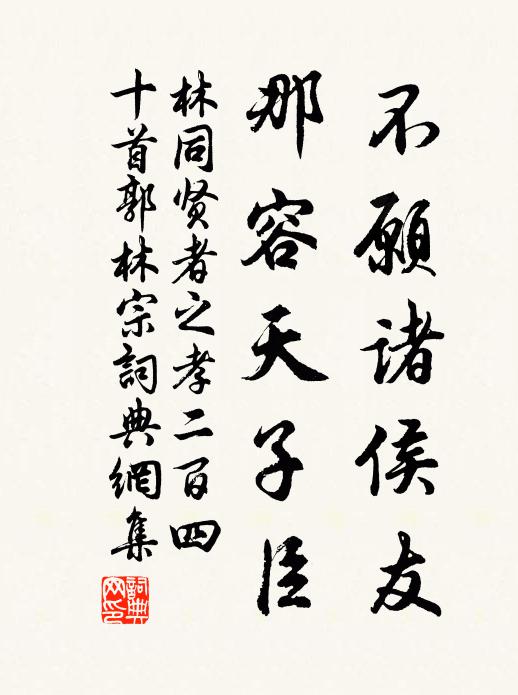 不願諸侯友
那容天子臣
林同贤者之孝二百四
十首郭林宗詞典網集
詞典
网印